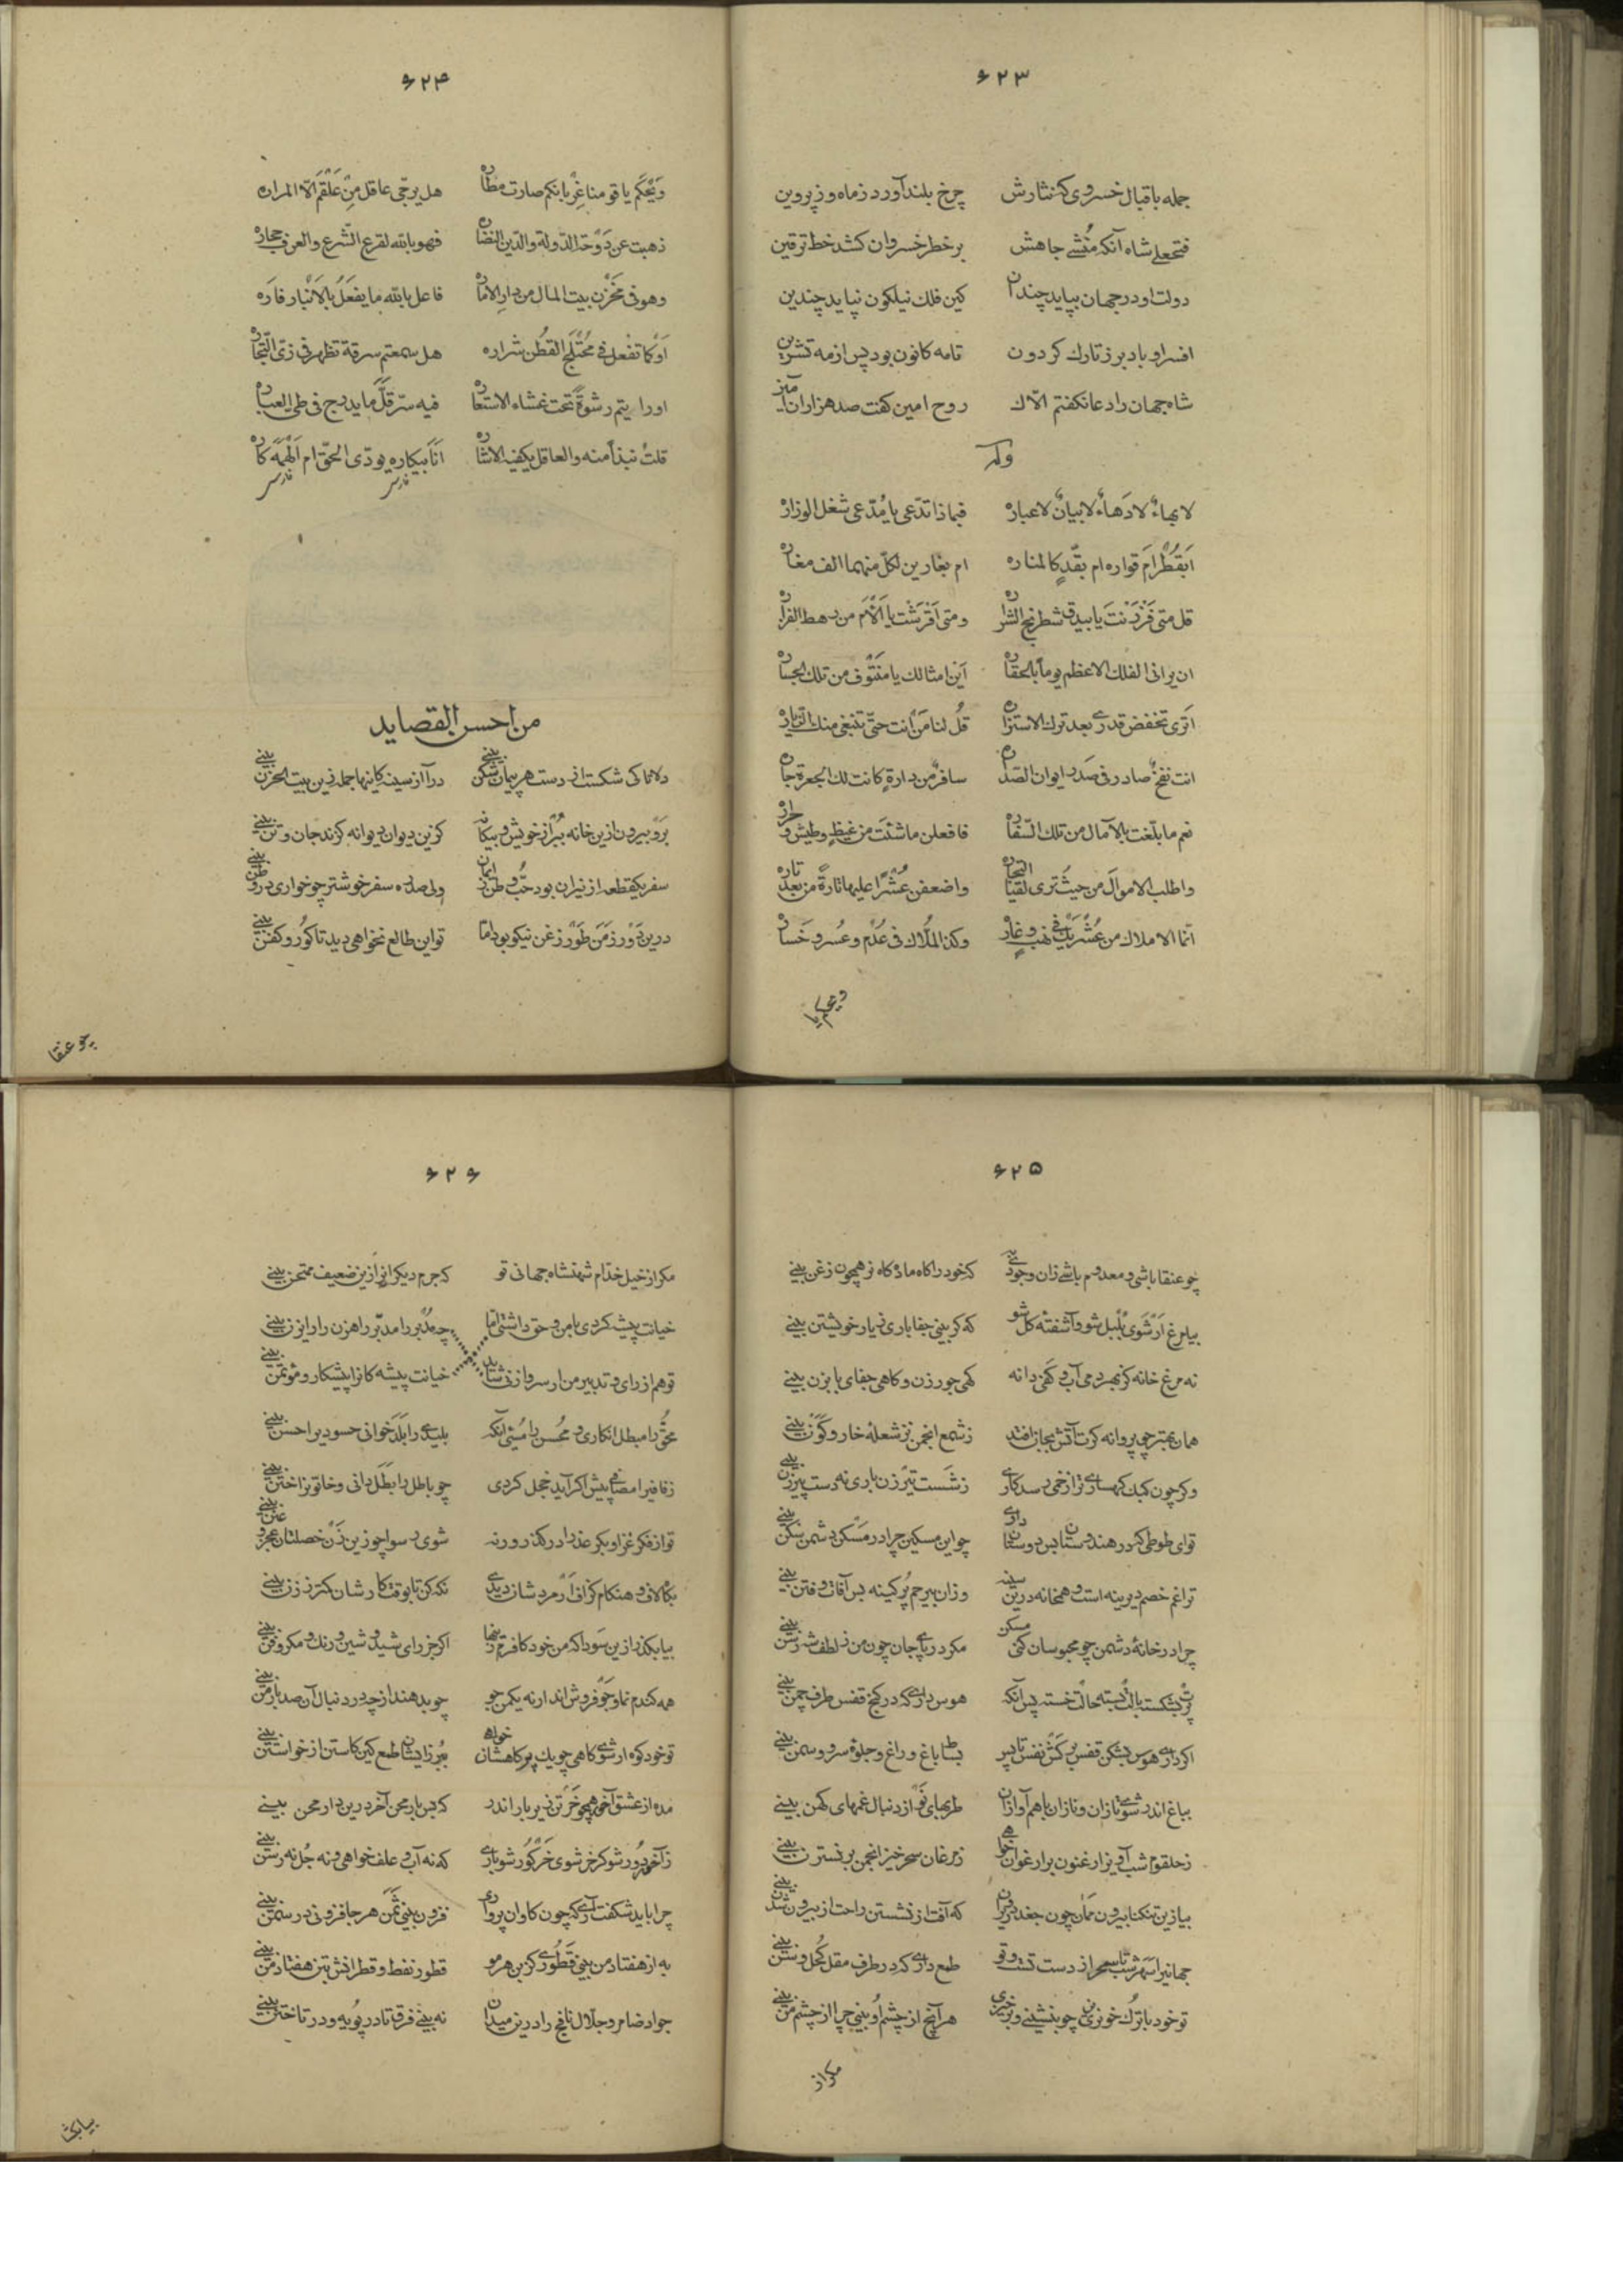 ۶۲۳
جمله باقبال خسروی که نثارش چرخ بلند آورد ز ماه و ز پروین
فتحعلی شاه آنکه منشی جاهش بر خط خسروان کشد خط ترقین
دولت او در جهان بپاید چندان کین فلک نیلگون نپاید چندین
افسر او باد بر ز تارک گردون تا مه کانون بود پس از مه تشرین
شاه جهان را دعا نگفتم الاک روح امین گفت صد هزاران آمین
وله
لا بهاء لا دهاء لا بیان لا عباره فبماذا تدعی یا مدعی شغل الوزاره
ابقطر ام قواره ام بقد کالمناره ام بغارین لکل منهما الف مغاره
قل متی فرزنت یا بیدق شطرنج الشراره ومتی اقرشت یا الأم من رهط الفزاره
ان یرانی الفلک الاعظم یوما بالحقاره این امثالک یا منتوف من تلک الجساره
اتری تخفض قدری بعد ترک الاستزاره قل لنا من انت حتی تبتغی منک الزیاره
انت نفخ صادر فی صدر ایوان الصداره سافر من دارة کانت لک الجعرة جاره
نعم ما بلغت بالآمال من تلک السفاره فافعلن ما شئت من غیظ وطیش وحراره
واطلب الاموال من حیث تری لقیا التجاره واضعفن عشرا علیها تارة من بعد تاره
انما الاملاک من عشریک فی نهب وغاره وکذا الملاک فی عدم وعسر وخساره
ویحکم یا
۶۲۴
ویحکم یا قومنا غربانکم صارت مطاره هل یرجی عاقل من علقم الا المراره
ذهبت عن دوحة الدولة والدین النضاره فهو بالله لقرع الشرع والعرف حجاره
وهو فی مخزن بیت المال من دار الاماره فاعل بالله ما یفعل بالانبار فاره
او کما تفعل فی محتلج القطن شراره هل سمعتم سرقة تظهر فی زی التجاره
او رایتم رشوة تحت غشاء الاستعاره فیه سر قل ما یدرج فی طی العباره
قلت نبذا منه والعاقل یکفیه الاشاره انا بیکاره یودی الحق ام الهمه کاره
فارسی فارسی
من احسن القصاید
دلا تا کی شکست از دست هر پیمان شکن بینی درآ از سینه کاینها جمله زین بیت الحزن بینی
برو بیرون ازین خانه ببر از خویش و بیگانه کزین دیوان دیوانه گزند جان و تن بینی
سفر یکقطعه از نیران بود حب وطن ز ایمان ولی صد ره سفر خوشتر چو خواری در وطن بینی
درین دور زمن طور زغن نیکو بود اما تو این طالع نخواهی دید تا گور و کفن بینی
چو عنقا
۶۲۵
چو عنقا باشی و معدوم باشی زان وجودی به که خود را گاه ماده گاه نر همچون زغن بینی
بیا مرغ ار شوی بلبل شو و آشفته گل شو که گر بینی جفا باری ز یار خویشتن بینی
نه مرغ خانه کز بهر دمی آب و کفی دانه گهی جور زن و گاهی جفای بابزن بینی
همان بهتر چو پروانه گرت آتش بجان افتد ز شمع انجمن نز شعله خار و گون بینی
وگر چون کبک کهساری ترا زخمی رسد کاری ز شست تیرزن باری نه دست پیرزن بینی
تو ای طوطی که در هندوستان بس دوستان داری چو این مسکین چرا در مسکن دشمن سکن بینی
ترا غم خصم دیرینه است و همخانه درین سینه وزان بیرحم پر کینه بس آفات و فتن بینی
چرا در خانه دشمن چو محبوسان کنی مسکن مگر در پای جان چون من ز لطف شه رسن بینی
پرت بشکسته بالت بسته حالت خسته پس آنگه هوس داری که در کنج قفس طرف چمن بینی
اگر داری هوس بشکن قفس برکش نفس تا پس بساط باغ و راغ و جلوه سرو و سمن بینی
بباغ اندر شوی تازان و نازان با هم آوازان طربهای نو از دنبال غمهای کهن بینی
ز حلقوم شب آویز ار غنون بر ارغوان خواهی ز مرغان سحرخیز انجمن بر نسترن بینی
بیا زین تنگنا بیرون ممان چون جغد در ویران که آفت از نشستن راحت از بیرون شدن بینی
جهانیرا سهر شب تا سحر از دست تست و تو طمع داری که در طرف مقل کحل وسن بینی
تو خود با ترک خونریزی چو بنشینی و برخیزی هر آنچ از چشم او بینی چرا از چشم من بینی
مگر از
۶۲۶
مگر از خیل خدام شهنشاه جهانی تو که جرم دیگرانرا زین ضعیف ممتحن بینی
خیانت پیشه کردی با من و حق داشتی اما چو مدبر را مدبر راهزن را رایزن بینی
تو هم از رای و تدبیر من ار سر وا زنی شاید خیانت پیشه کانرا پیشکار و مؤتمن بینی
محق را مبطل انگاری و محسن را مسئی آنگه بلیدی را بلد خوانی حسودیرا حسن بینی
چو باطل را بطل دانی و خاتونرا ختن بینی
تو از فکر غزا و بکر عذرا درگذر ورنه شوی رسوا چو زین زن خصلتان عجز و عنن بینی
بگاه لاف و هنگام گزاف ار مردشان دیدی نگه کن تا بوقت کارشان کمتر ز زن بینی
بیا بگذر ازین سودا که من خود کافرم زینها اگر جز رای شید و شین و رنگ و مکر و فن بینی
همه گندم نما و جو فروش اند ار نه یکمن جو چو بدهند از چه در دنبال آن صد بار من بینی
تو خود کوه ار شوی کاهی چو یک پر کاهشان خواهی ببر زایشان طمع کین کاستن از خواستن بینی
مده از عشق آخور همچو خر تن زیر بار اندر که بس بار محن آخر درین دار محن بینی
ز آخور دور شو گر خر شوی خر گور شو باری که نه آب و علف خواهی و نه جل نه رسن بینی
چرا باید شگفت آری که چون گاوان پرواری فزون بینی ثمن هر جا فزونی در سمن بینی
به از هفتاد من بینی قطوری کز بن هر مو قطور نفط و قطرانش بتن هفتاد من بینی
جواد ضامر و جلال نافج را درین میدان نه بینی فرق تا در پویه و در تاختن بینی
بیا بکش